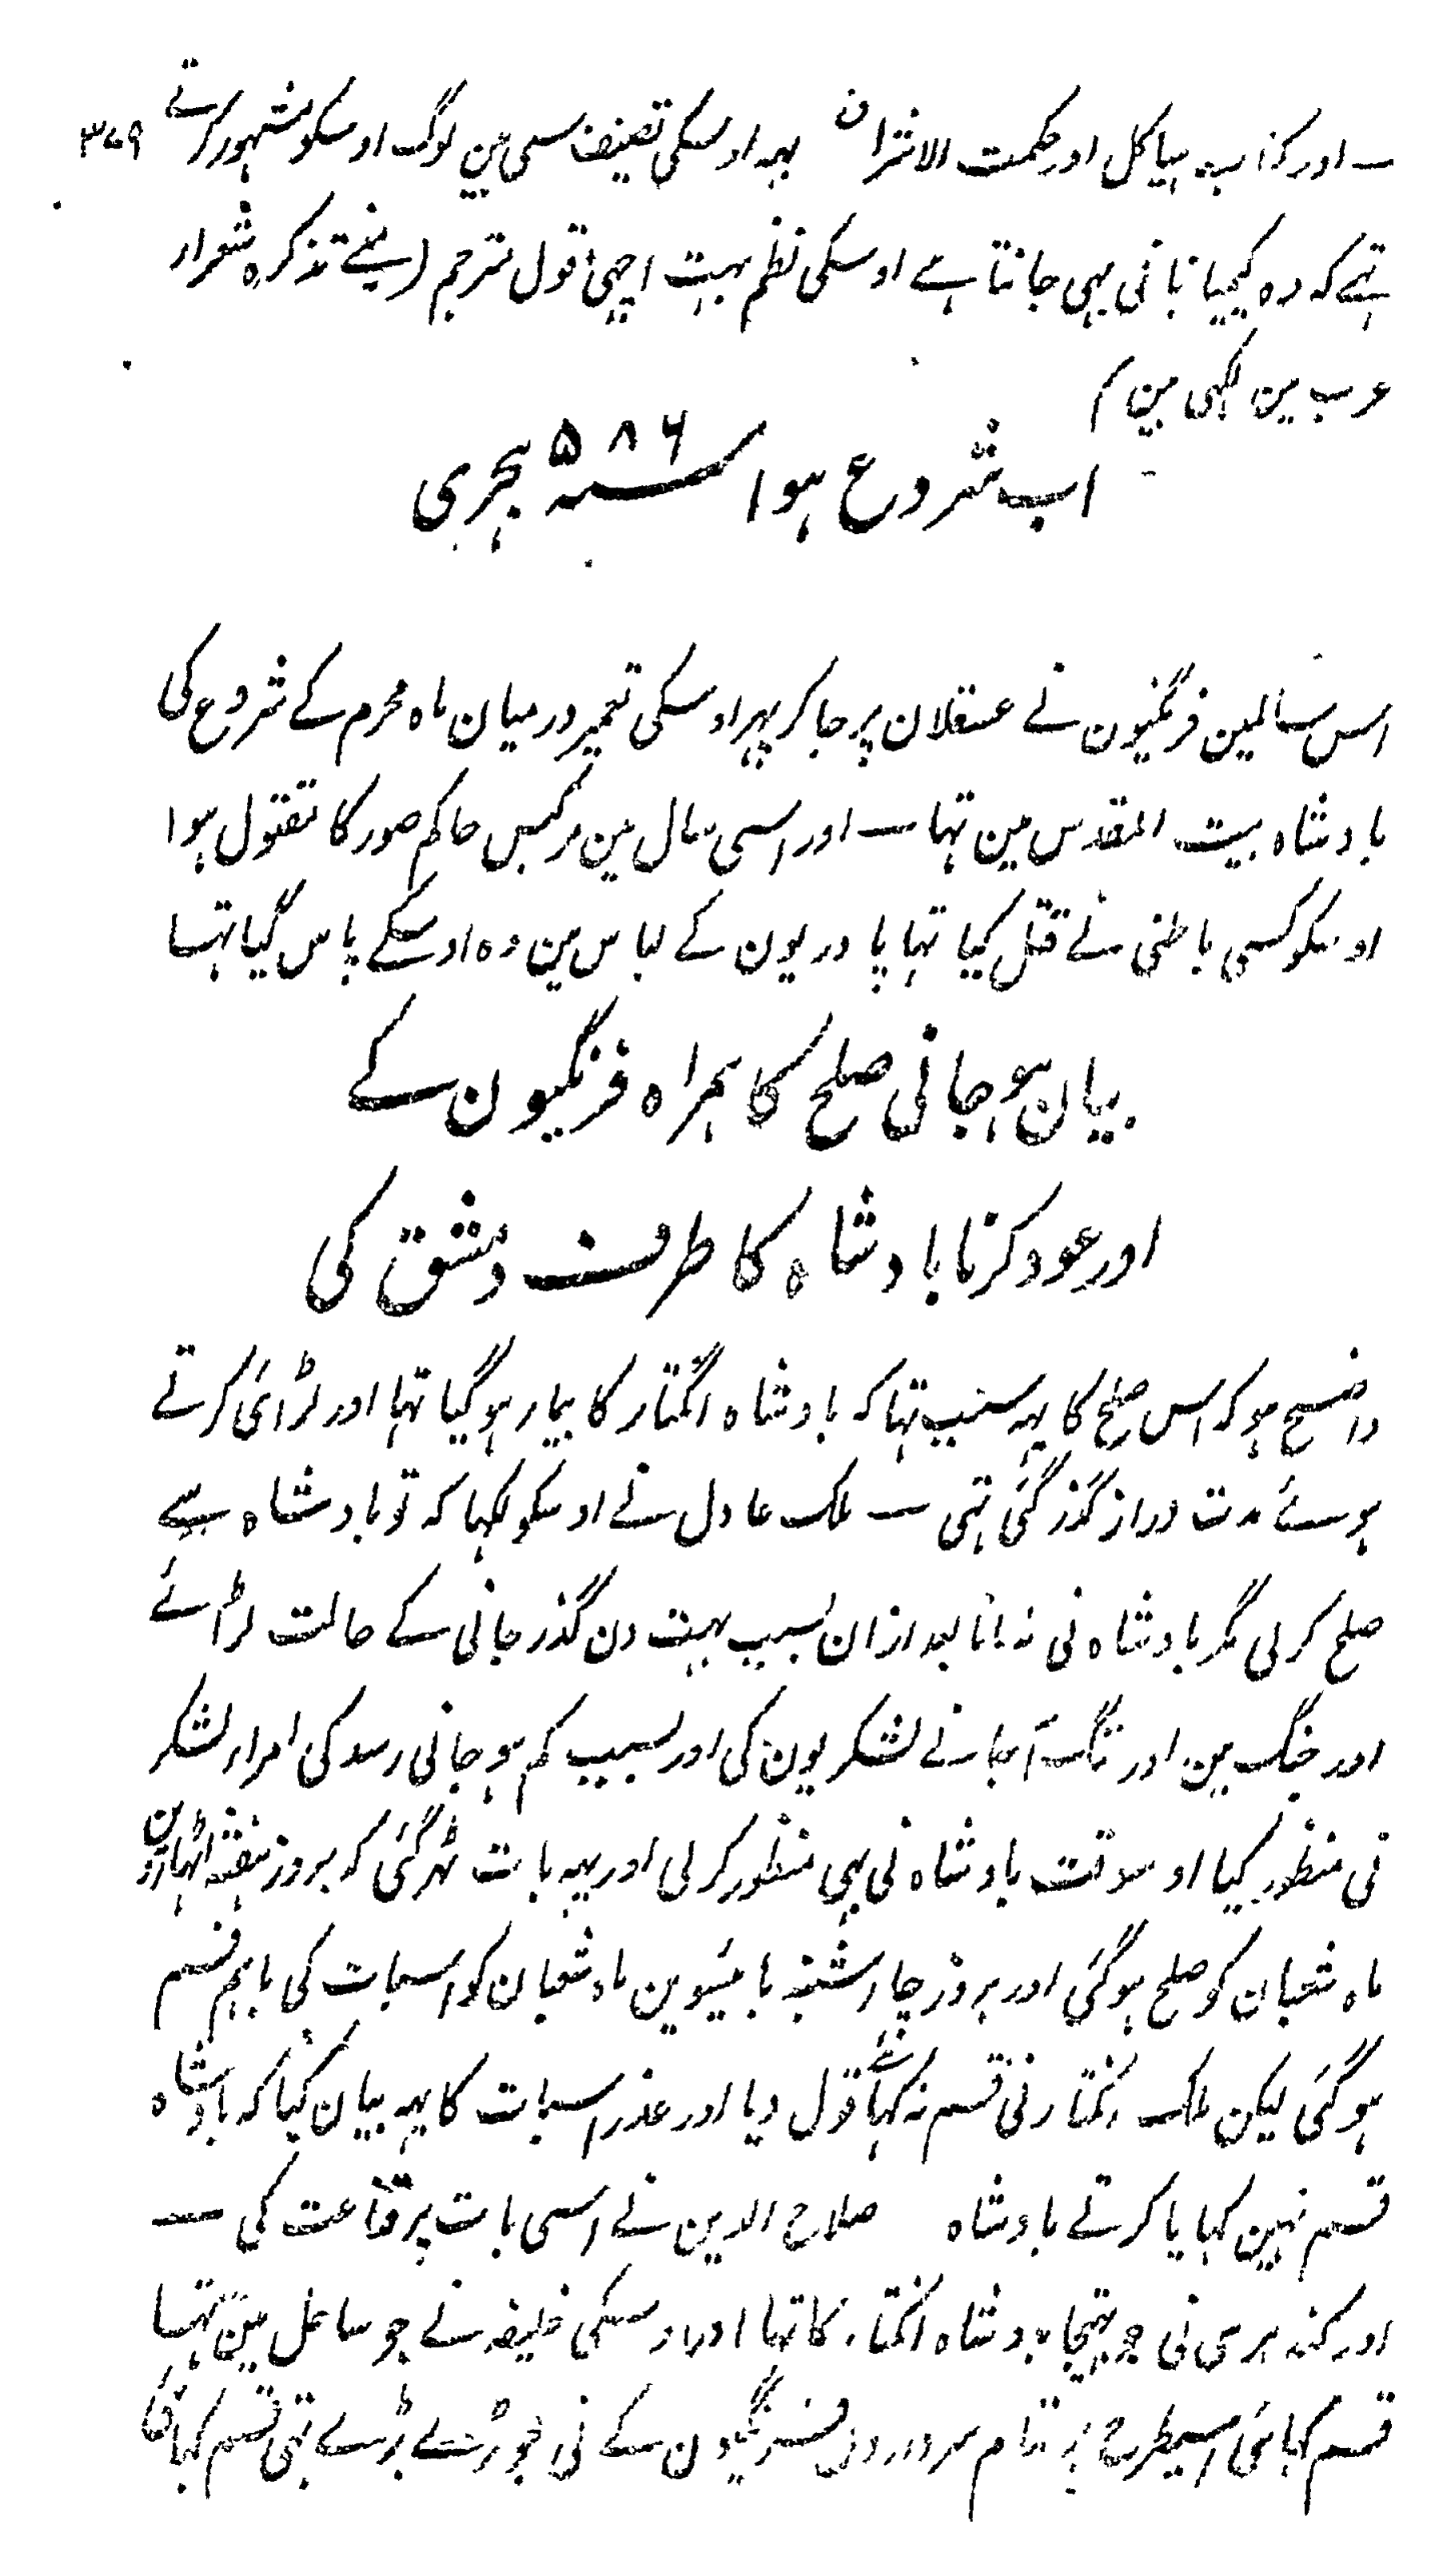 ۳۷۹
ـ اور کتاب ہیاکل اور حکمت الاشراق یہہ اوسکی تصنیف سی ہین لوگ اوسکو مشہور کرتے
تہے کہ وہ کیمیا بنانی بہی جانتا ہے اوسکی نظم بہت اچہی اقول مترجم (مینے تذکرہ شعراء
عرب مین لکہی ہین)
اب شروع ہوا سنہ ۵۸۶ ہجری
اس سالمین فرنگیون نے عسقلان پر جاکر پہر اوسکی تعمیر درمیان ماہ محرم کے شروع کی
بادشاہ بیت المقدس مین تہا ـ اور اسی سال مین مرکیس حاکم صور کا مقتول ہوا
اوسکو کسی باطنی نے قتل کیا تہا پادریون کے لباس مین وہ اوسکے پاس گیا تہا
بیان ہوجانی صلح کا ہمراہ فرنگیون کے
اور عود کرنا بادشاہ کا طرف دمشق کی
واضح ہو کہ اس صلح کا یہہ سبب تہا کہ بادشاہ انگتار کا بیمار ہوگیا تہا اور لڑائی کرتے
ہوئے مدت دراز گذر گئی تہی ـ ملک عادل نے اوسکو لکہا کہ تو بادشاہ سے
صلح کر لی مگر بادشاہ نی نہ مانا بعد ازان بسبب بہت دن گذر جانی کے حالت لڑائے
اور جنگ مین اور تنگ آجانے لشکریون کی اور بسبب کم ہوجانی رسد کی امراء لشکر
نی منظور کیا اوسوقت بادشاہ نی بہی منظور کر لی اور یہہ بات ٹہر گئی کہ بروز ہفتہ اٹہاروین
ماہ شعبان کو صلح ہوگئی اور بروز چارشنبہ بائیسوین ماہ شعبان کو اسبات کی باہم قسم
ہوگئی لیکن ملک انکتار نی قسم نہ کہائے قول دیا اور عذر اسبات کا یہہ بیان کیا کہ بادشاہ
قسم نہین کہایا کرتے بادشاہ صلاح الدین نے اسی بات پر قناعت کی ـ
اور کند ہری نی جو بہتیجا بادشاہ انکتار کا تہا اور اوسکی خلیفہ نے جو ساحل مین تہا
قسم کہائی اسیطرح پر تمام سرداروں فرنگیون کے نی جو بڑے بڑے تہی قسم کہائی